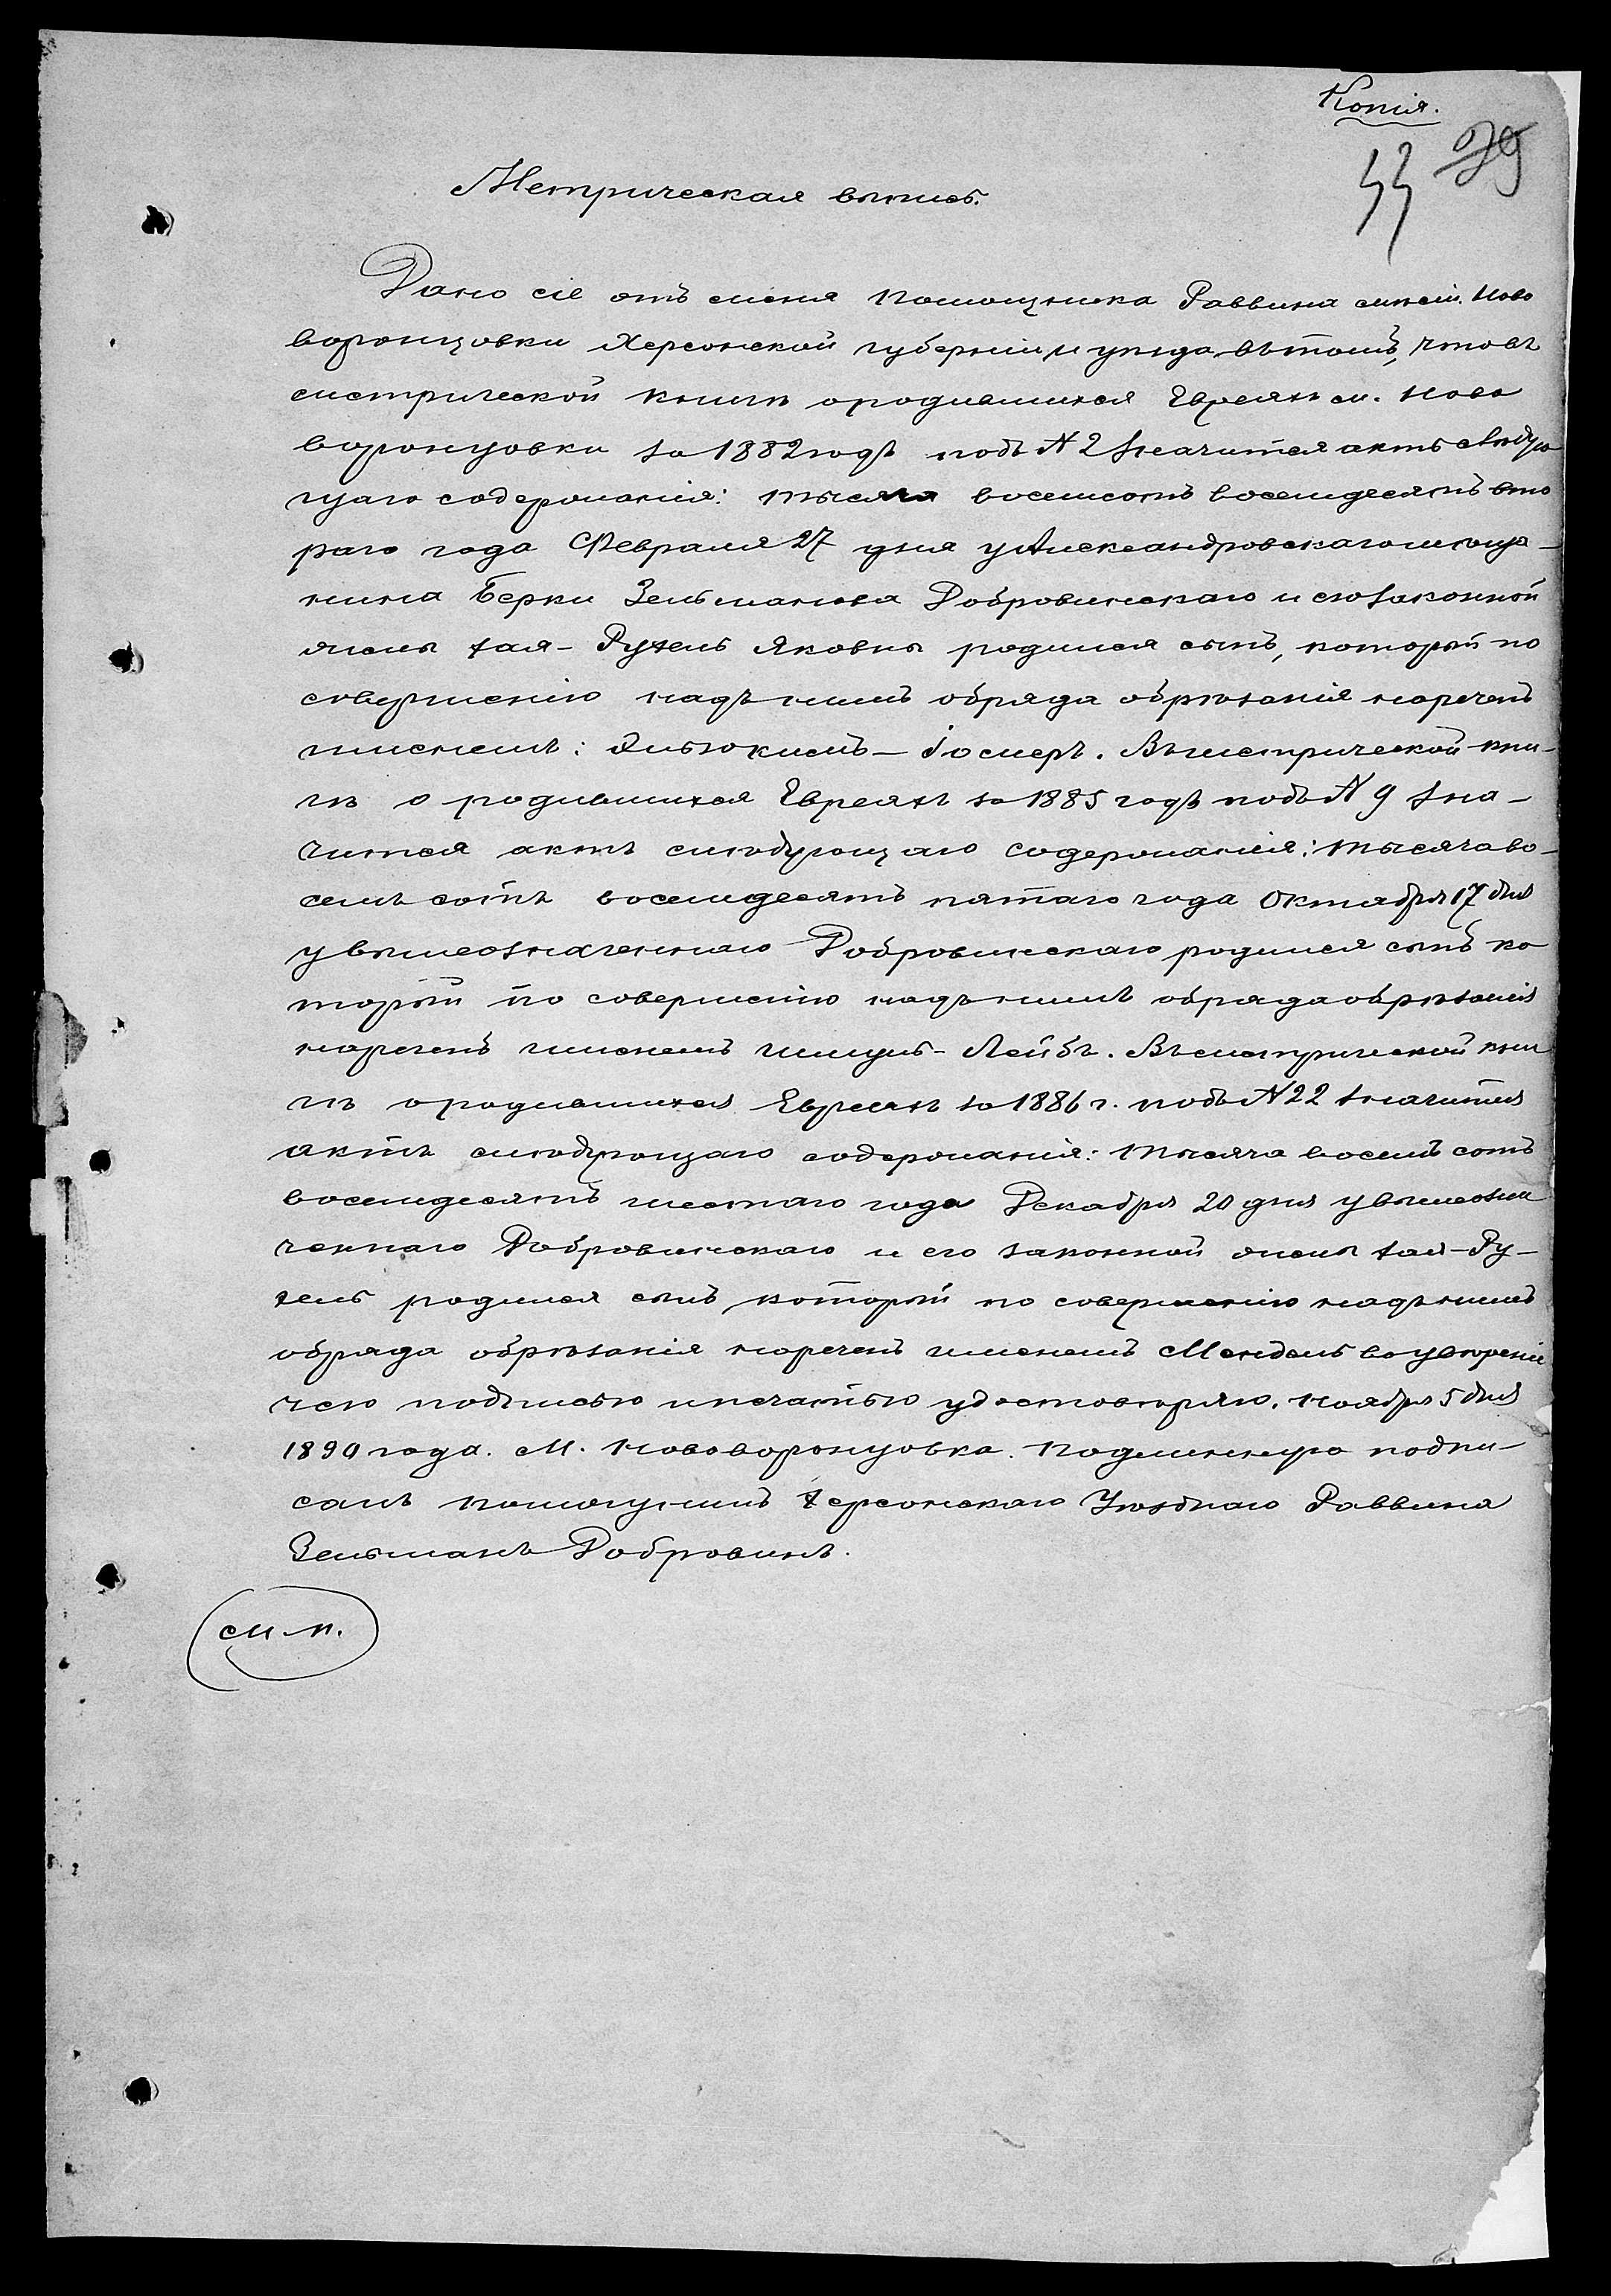 Копія.
39
44
Метрическая выпись.
Дано сіе отъ меня помощника Раввина мѣст. Ново
воронцовки Херсонской губерніи и уѣзда, вътомъ, что въ
метрической книгѣ ородившихся Евреяхъ м. Ново
воронцовки за 1882 годъ подъ № 2 значится актъ слѣдую
щаго содержанія: тысяча восемсотъ восемдесятъ вто
раго года Февраля 27 дня у Александровскаго мѣща-
нина Берки Зельманова Добровинскаго и его законной
жены Хая-Рухель Яковны родился сынъ, который по
совершенію надъ нимъ обряда обрѣзанія нареченъ
именемъ: Эльюкимъ- Въ метрической кни-
гѣ о родившихся Евреяхъ за 1885 годъ подъ № 9 зна-
чится актъ слѣдующаго содержанія: тысяча во-
семь сотъ восемдесятъ пятаго года Октября 17 дня
у вышеозначеннаго Добровинскаго родился сынъ ко
торый по совершенію надъ нимъ обряда обрѣзанія
нареченъ именемъ Шмуль-Лейбъ. Въ метрической кни
гѣ ородившихся Евреяхъ за 1886 г. подъ № 22 значится
актъ слѣдующаго содержанія: тысяча восемь сотъ
восемдесятъ шестаго года Декабря 20 дня у вышеозна
ченнаго Добровинскаго и его законной жены Хая-Ру-
хель родился сынъ который по совершенію надъ нимъ
обряда обрѣзанія нареченъ именемъ Мендель во увѣреніе
чего подписью и печатью удостовѣряю. Ноября 5 дня
1890 года. М. Нововоронцовка. Подлинную подпи-
салъ помощникъ Херсонскаго Уѣзднаго Раввина
Зельманъ Добровинъ.
М. п.